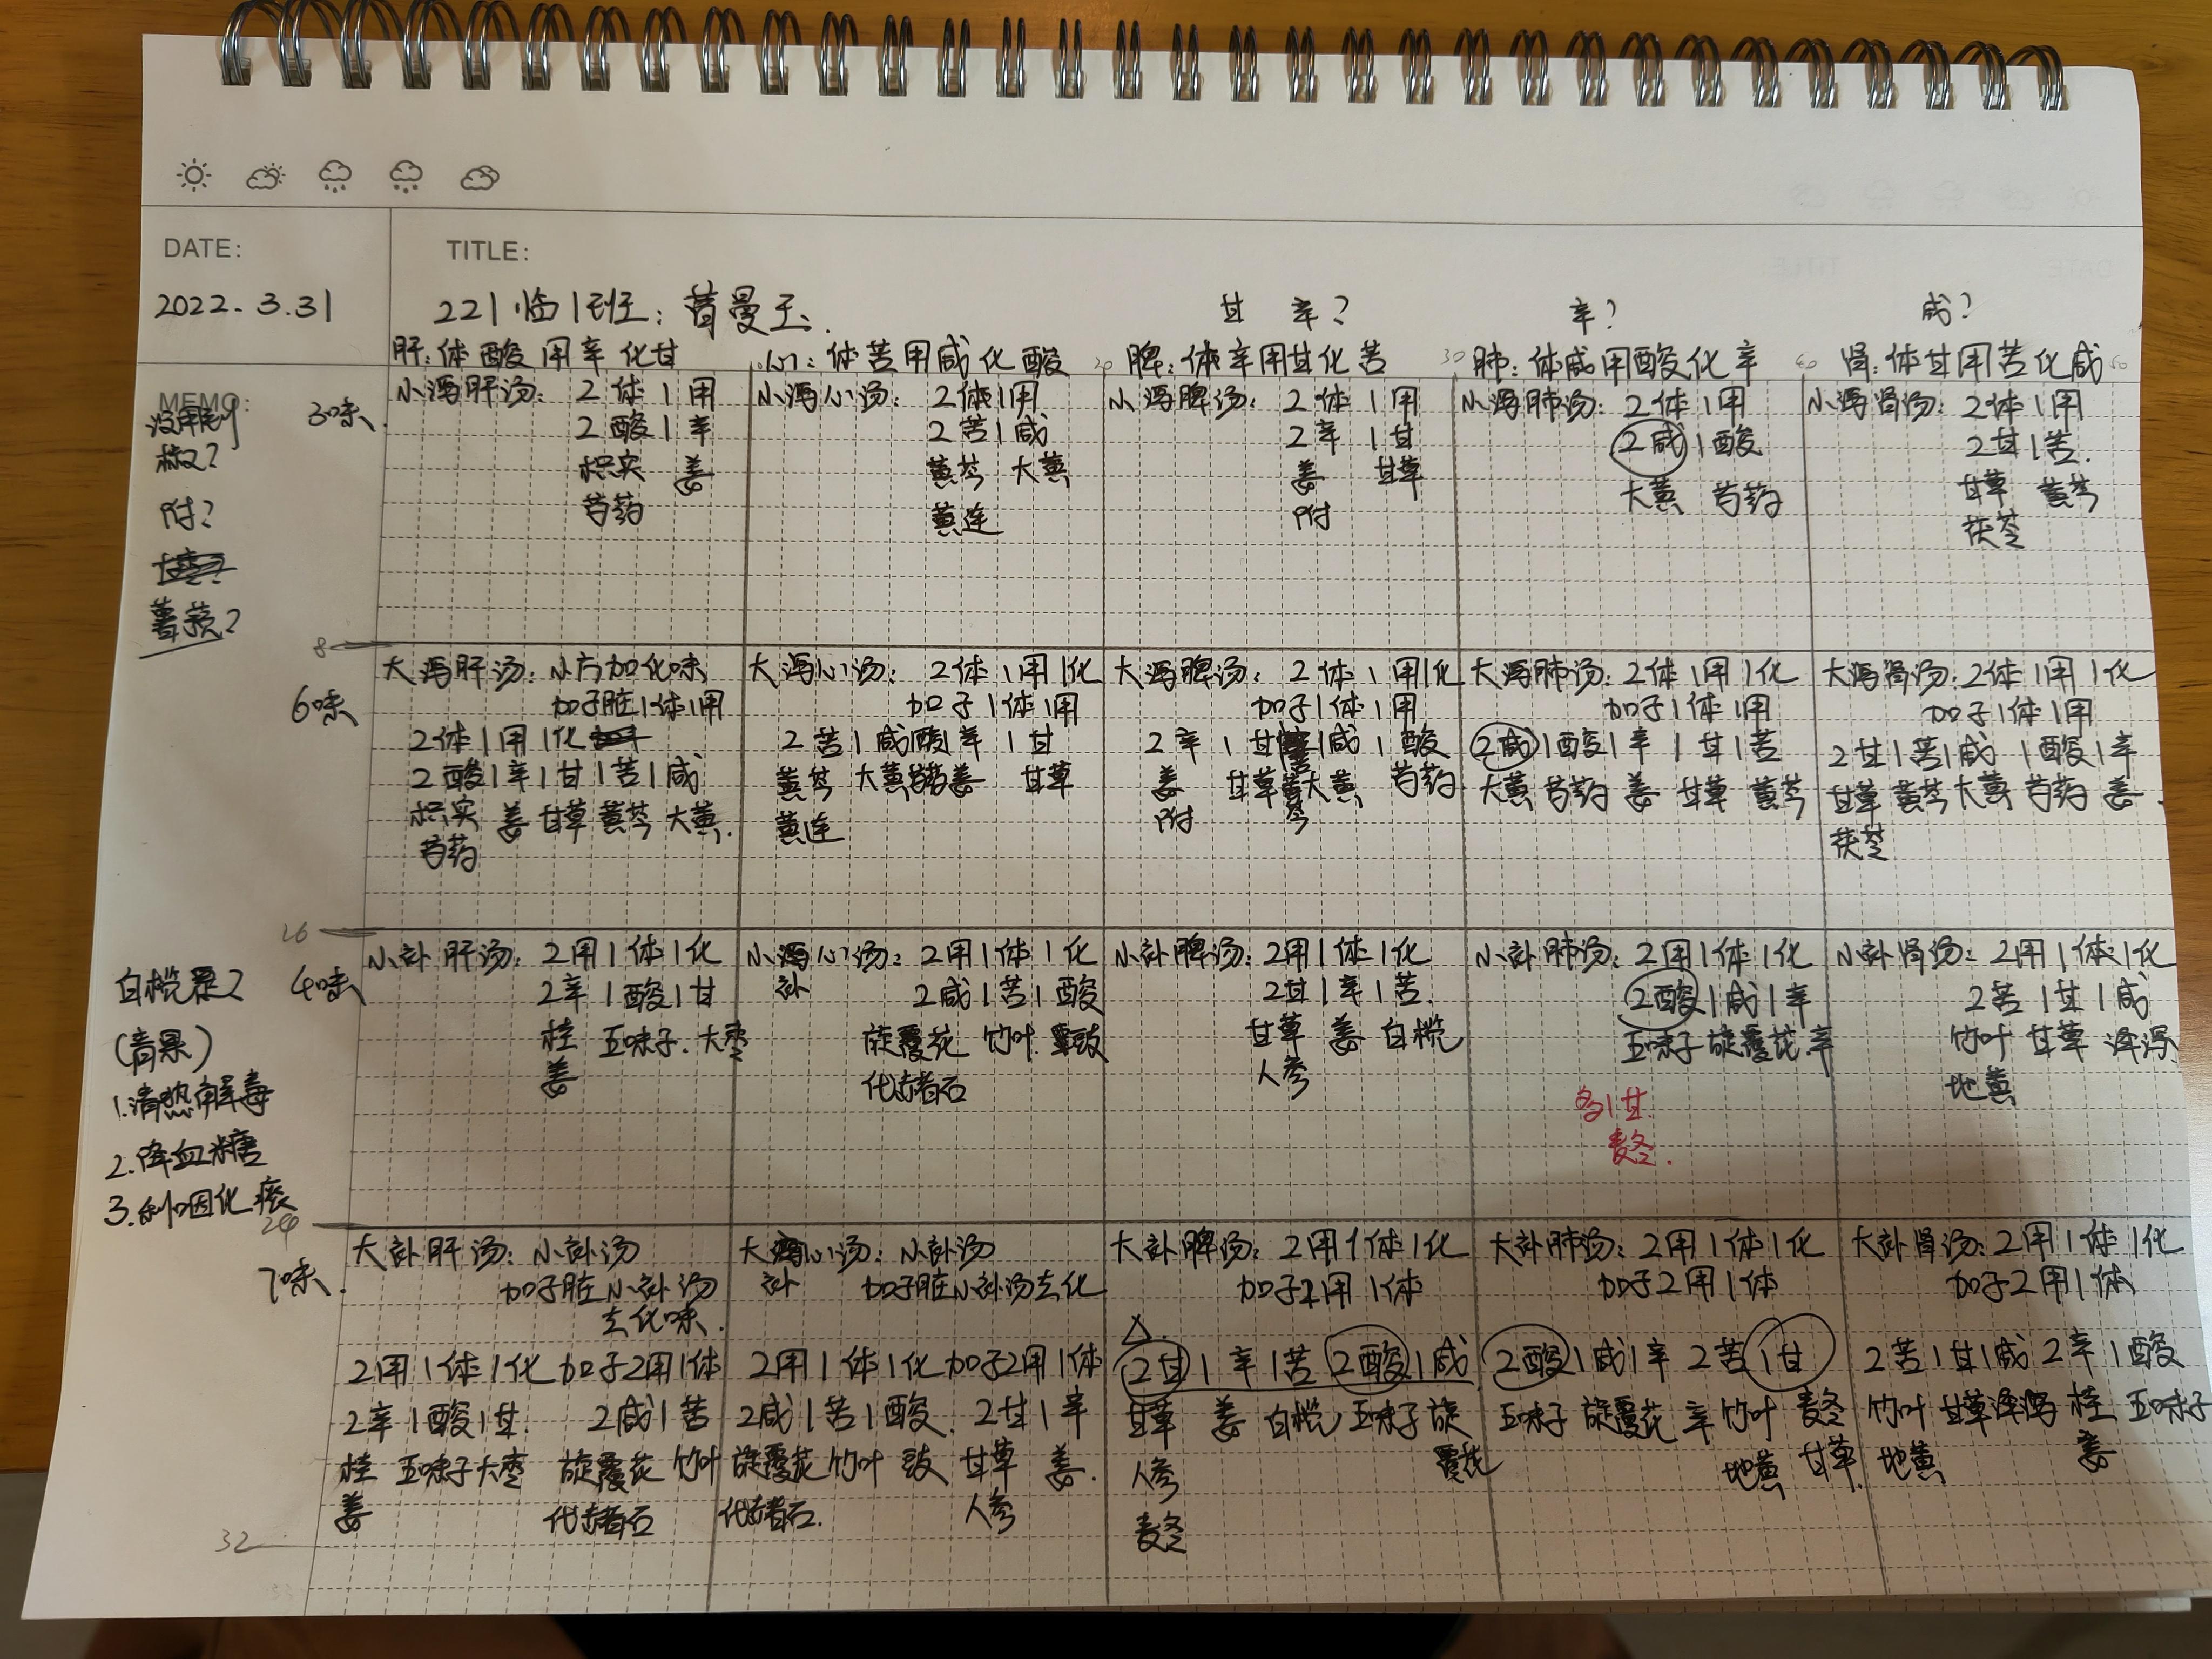 DATE:
TITLE:
2022.3.31
221临1班:
甘 辛?
辛?
咸?
肝:体酸用辛化甘
心:体苦用咸化酸
20
脾:体辛用甘化苦
30
肺:体咸用酸化辛
40
肾:体甘用苦化咸
MEMO:
没用到
椒?
附?
薯蓣?
3味.
小泻肝汤: 2体1用
2酸1辛
枳实 姜
芍药
小泻心汤: 2体1用
2苦1咸
黄芩 大黄
黄连
小泻脾汤: 2体1用
2辛1甘
姜 甘草
附
小泻肺汤: 2体1用
2咸1酸
大黄 芍药
小泻肾汤: 2体1用
2甘1苦.
甘草 黄芩
茯苓
8
6味
大泻肝汤: 小方加化味
加子脏1体1用
2体1用1化
2酸1辛1甘1苦1咸
枳实 姜 甘草 黄芩 大黄.
芍药
大泻心汤: 2体1用1化
加子1体1用
2苦1咸1酸1辛1甘
黄芩 大黄 芍药 姜 甘草
黄连
大泻脾汤: 2体1用1化
加子1体1用
2辛1甘1苦1咸1酸
姜 甘草 黄芩 大黄 芍药.
附
大泻肺汤: 2体1用1化
加子1体1用
2咸1酸1辛1甘1苦
大黄 芍药 姜 甘草 黄芩
大泻肾汤: 2体1用1化
加子1体1用
2甘1苦1咸1酸1辛
甘草 黄芩 大黄 芍药 姜.
茯苓
16
白榄是?
(青果)
1.清热解毒
2.降血糖
3.利咽化痰
4味
小补肝汤: 2用1体1化
2辛1酸1甘
桂 五味子.大枣
姜
小泻心汤: 2用1体1化
补
2咸1苦1酸
旋覆花 竹叶 豉
代赭石
小补脾汤: 2用1体1化
2甘1辛1苦.
甘草 姜 白榄
人参
小补肺汤: 2用1体1化
2酸1咸1辛
五味子 旋覆花 辛
多1甘
麦冬.
小补肾汤: 2用1体1化
2苦1甘1咸
竹叶 甘草 泽泻
地黄
24
7味.
大补肝汤: 小补汤
加子脏小补汤
去化味.
2用1体1化 加子2用1体
2辛1酸1甘. 2咸1苦
桂 五味子大枣 旋覆花 竹叶
姜 代赭石
大泻心汤: 小补汤
补 加子脏小补汤去化
2用1体1化加子2用1体
2咸1苦1酸. 2甘1辛
旋覆花 竹叶 豉 甘草 姜.
代赭石. 人参
大补脾汤: 2用1体1化
加子2用1体
△.
2甘1辛1苦2酸1咸
甘草 姜 白榄 五味子 旋
覆花
人参
麦冬
大补肺汤: 2用1体1化
加子2用1体
2酸1咸1辛 2苦1甘
五味子 旋覆花 辛 竹叶 麦冬
地黄 甘草.
大补肾汤: 2用1体1化
加子2用1体
2苦1甘1咸 2辛1酸
竹叶 甘草 泽泻 桂 五味子
地黄 姜
32